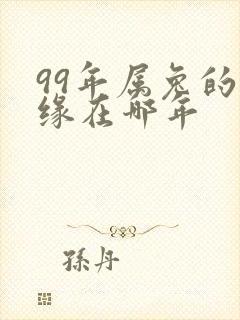 99年属兔的
缘在哪年
孫丹